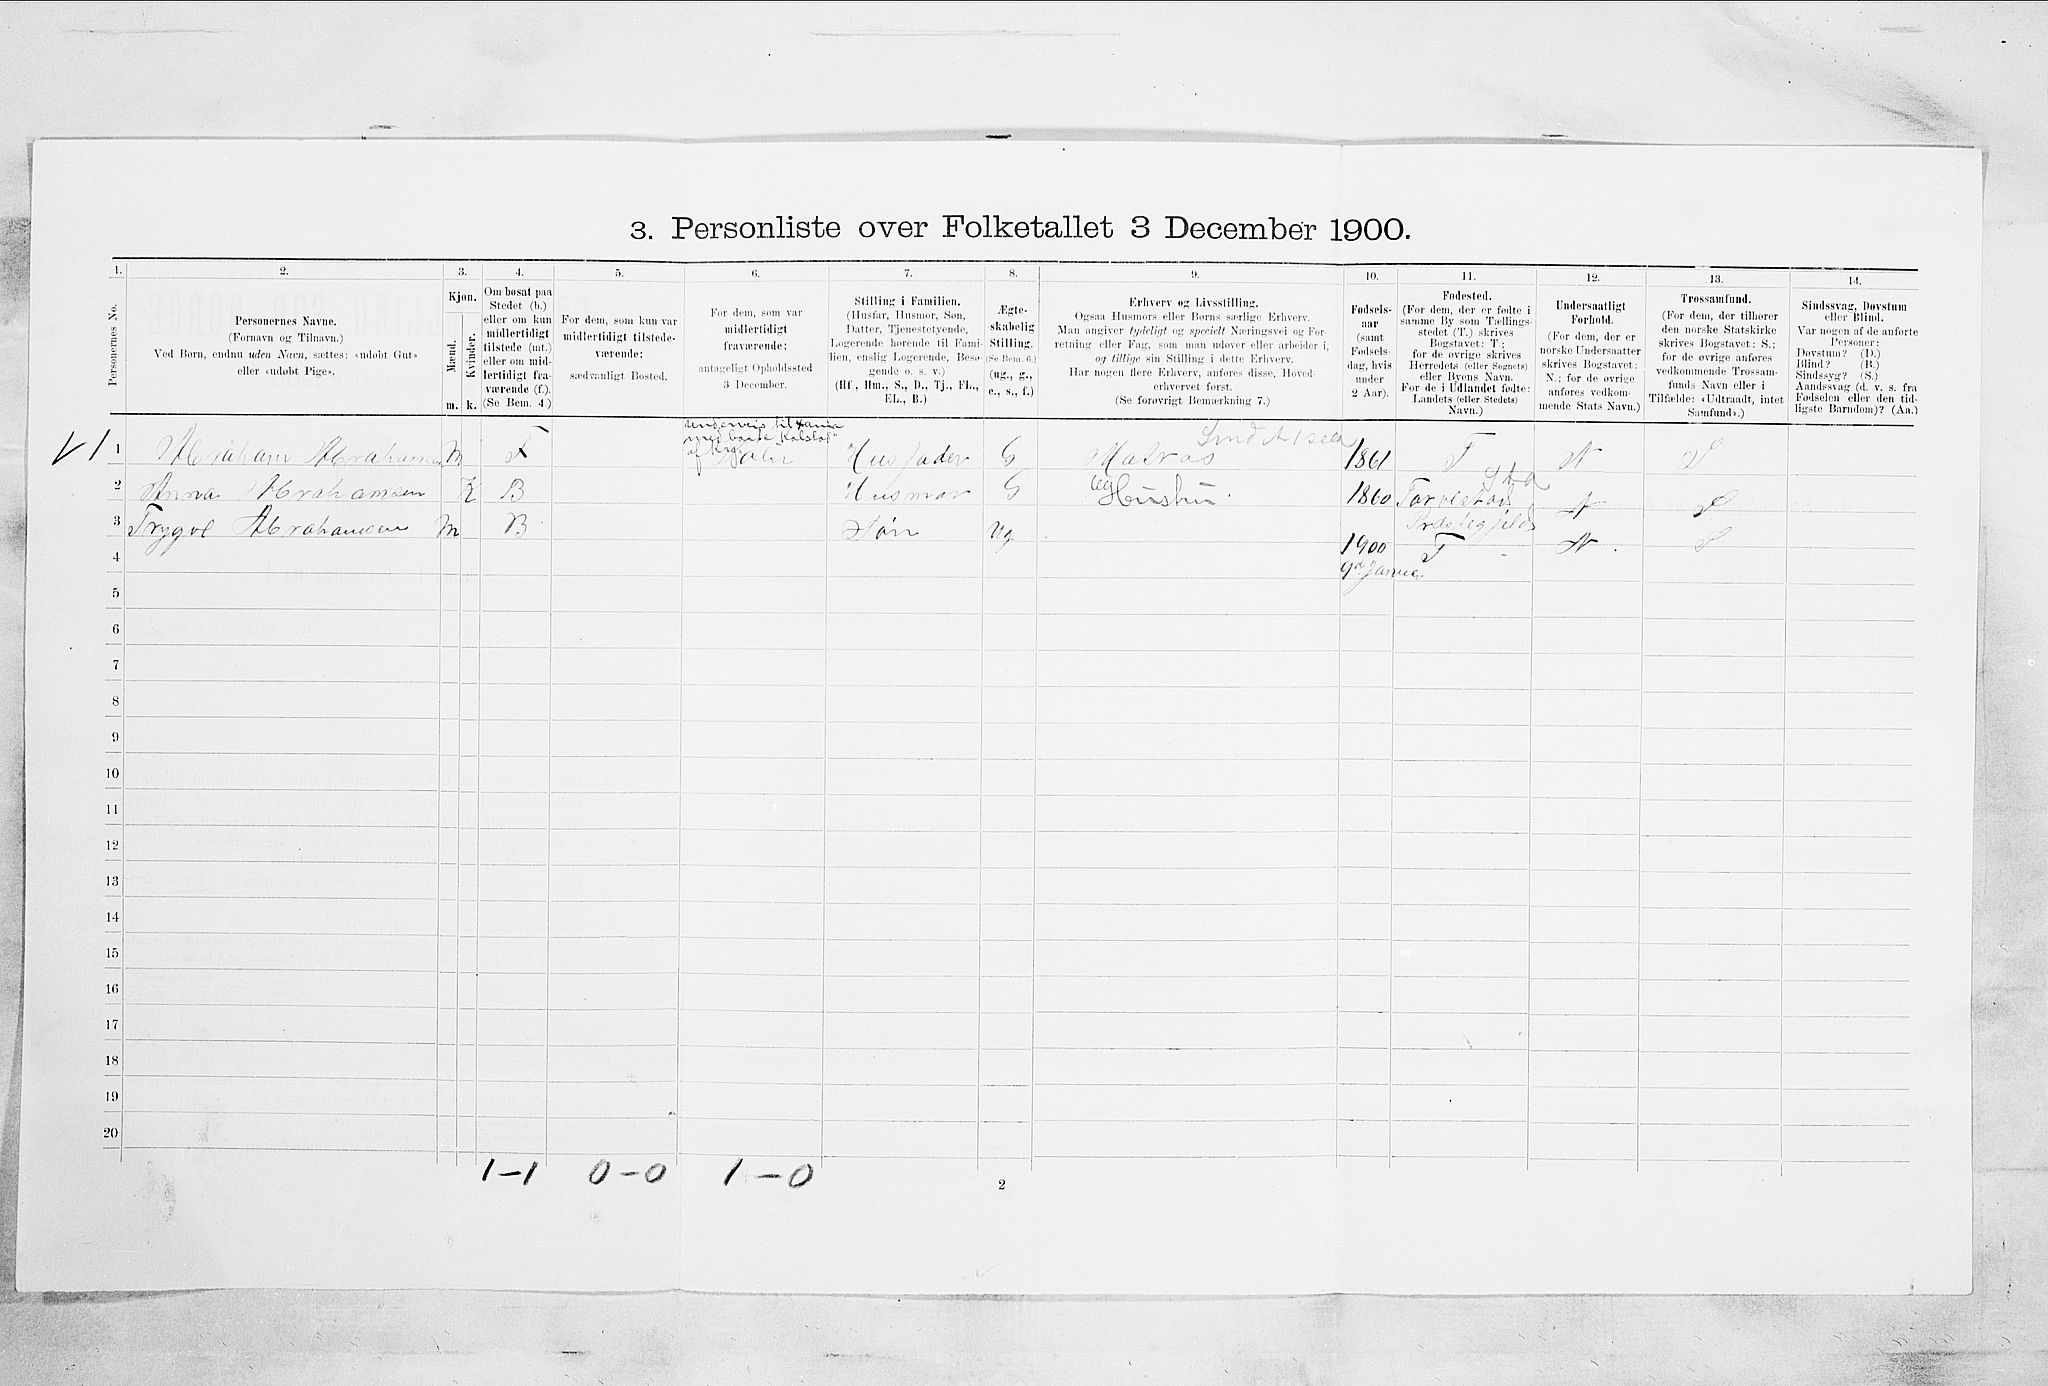 3. Personliste over Folketallet 3 December 1900.
1. 2. 3. 4. 5. 6. 7. 8. 9. 10. 11. 12. 13. 14.
Personernes No.
Personernes Navne.
(Fornavn og Tilnavn.)
Ved Børn, endnu uden Navn, sættes: «udøbt Gut»
eller «udøbt Pige».
Kjøn.
Mænd. Kvinder.
m. k.
Om bosat paa
Stedet (b.)
eller om kun
midlertidigt
tilstede (mt.)
eller om mid-
lertidigt fra-
værende (f.).
(Se Bem. 4.)
For dem, som kun var
midlertidigt tilstede-
værende:
sædvanligt Bosted.
For dem, som var
midlertidigt
fraværende:
antageligt Opholdssted
3 December.
Stilling i Familien.
(Husfar, Husmor, Søn,
Datter, Tjenestetyende,
Logerende hørende til Fami-
lien, enslig Logerende, Besø-
gende o. s. v.)
(Hf, Hm., S., D., Tj., FL.,
EL., B.)
Ægte-
skabelig
Stilling.
(Se Bem. 6.)
(ug., g.,
e., s., f.)
Erhverv og Livsstilling.
Ogsaa Husmors eller Børns særlige Erhverv.
Man angiver tydeligt og specielt Næringsvei og For-
retning eller Fag, som man udøver eller arbeider i,
og tillige sin Stilling i dette Erhverv.
Har nogen flere Erhverv, anføres disse, Hoved-
erhvervet først.
(Se forøvrigt Bemærkning 7.)
Fødsels-
aar
(samt
Fødsels-
dag, hvis
under
2 Aar).
Fødested.
(For dem, der er fødte i
samme By som Tællings-
stedet (T.) skrives
Bogstavet: T.;
for de øvrige skrives
Herredets (eller Sognets)
eller Byens Navn.
For de i Udlandet fødte:
Landets (eller Stedets)
Navn.)
Undersaatligt
Forhold.
(For dem, der er
norske Undersaatter
skrives Bogstavet:
N.; for de øvrige
anføres vedkom-
mende Stats Navn.)
Trossamfund.
(For dem, der tilhører
den norske Statskirke
skrives Bogstavet: S.;
for de øvrige anføres
vedkommende Trossam-
funds Navn eller i
Tilfælde: «Udtraadt, intet
Samfund».)
Sindssvag, Døvstum
eller Blind.
Var nogen af de anførte
Personer:
Døvstum? (D.)
Blind? (B.)
Sindssyg? (S.)
Aandssvag (d. v. s. fra
Fødselen eller den tid-
ligste Barndom)? (Aa.)
1 Abraham Abrahamsen M F Husfader G Matros 1861 T N S
2 Anna Abrahamsen K B Husmor G Hustru 1860 Torvestad N S
Præstegjeld
3 Trygve Abrahamsen M B Søn Ug 1900 T N S
4 9de Januar
5
6
7
8
9
10
11
12
13
14
15
16
17
18
19
20
1-1 0-0 1-0
2